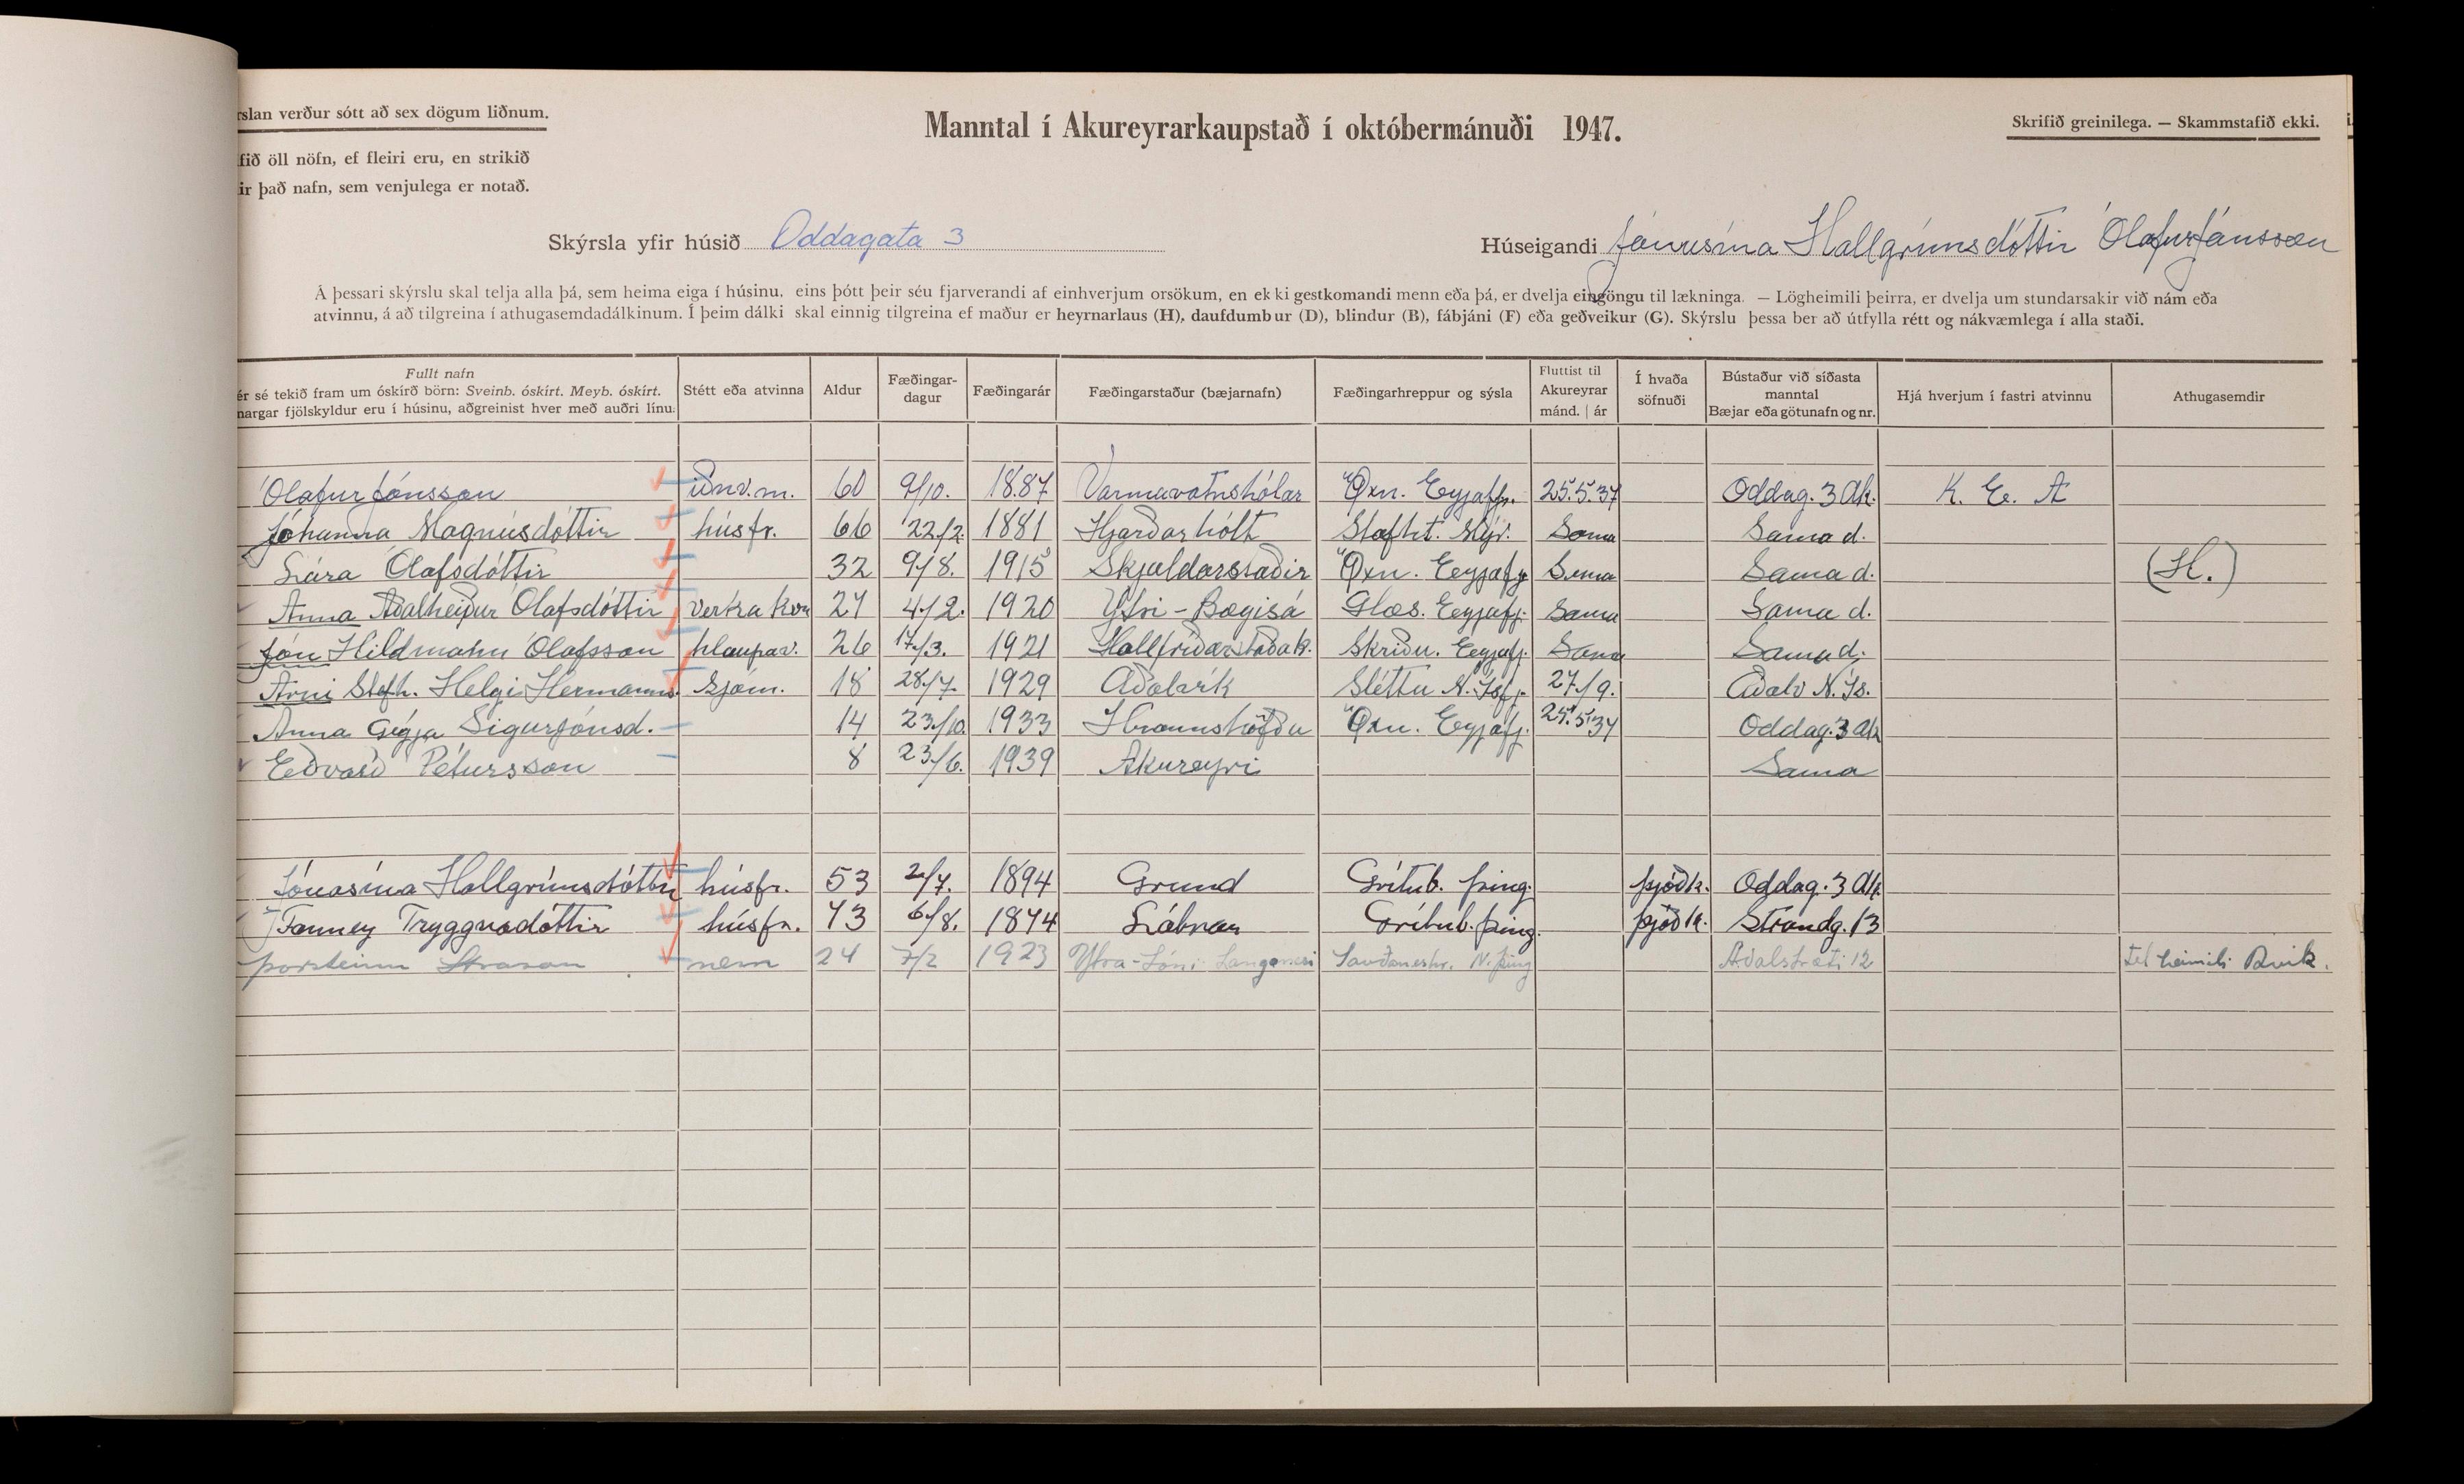 rslan verður sótt að sex dögum liðnum.
Manntal í Akureyrarkaupstað í októbermánuði 1947.
Skrifið greinilega. — Skammstafið ekki.
fið öll nöfn, ef fleiri eru, en strikið
ir það nafn, sem venjulega er notað.
Skýrsla yfir húsið Oddagata 3
Húseigandi Jónasína Hallgrímsdóttir Ólafur Jónsson
Á þessari skýrslu skal telja alla þá, sem heima eiga í húsinu, eins þótt þeir séu fjarverandi af einhverjum orsökum, en ekki gestkomandi menn eða þá, er dvelja eingöngu til lækninga. — Lögheimili þeirra, er dvelja um stundarsakir við nám eða
atvinnu, á að tilgreina í athugasemdadálkinum. Í þeim dálki skal einnig tilgreina ef maður er heyrnarlaus (H), daufdumbur (D), blindur (B), fábjáni (F) eða geðveikur (G). Skýrslu þessa ber að útfylla rétt og nákvæmlega í alla staði.
Fullt nafn
ér sé tekið fram um óskírð börn: Sveinb. óskírt. Meyb. óskírt.
margar fjölskyldur eru í húsinu, aðgreinist hver með auðri línu.
Stétt eða atvinna
Aldur
Fæðingar-
dagur
Fæðingarár
Fæðingarstaður (bæjarnafn)
Fæðingarhreppur og sýsla
Fluttist til
Akureyrar
mánd. | ár
Í hvaða
söfnuði
Bústaður við síðasta
manntal
Bæjar eða götunafn og nr.
Hjá hverjum í fastri atvinnu
Athugasemdir
Ólafur Jónsson iðnv.m. 60 9/10. 1887 Varmavatnshólar Öxn. Eyjafj. 25.5.37 Oddag. 3 Ak. K. E. A
Jóhanna Magnúsdóttir húsfr. 66 22/2. 1881 Hjarðarholt Stafht. Mýr. Sama Sama d.
Lára Ólafsdóttir 32 9/8. 1915 Skjaldarstaðir Öxn. Eyjafj. Sama Sama d. (H.)
Anna Aðalheiður Ólafsdóttir verkakon 27 4/2. 1920 Ytri-Bægisá Glæs. Eyjafj. Sama Sama d.
Jón Hildmann Ólafsson hlaupav. 26 17/3. 1921 Hallfríðarstaðak. Skriðu. Eyjafj. Sama Sama d.
Árni Stefh. Helgi Hermanns. Sjóm. 18 28/7 1929 Aðalvík Sléttu N. Ísfj. 27/9. Aðalv N. Ís.
Anna Gígja Sigurjónsd. 14 23/10. 1933 Hraunshöfða Öxn. Eyjafj. 25.5.37 Oddag. 3 Ak
Eðvarð Pétursson 8 23/6. 1939 Akureyri Sama
Jónasína Hallgrímsdóttir húsfr. 53 2/7. 1894 Grund Grítub. þing. þjóðk. Oddag. 3 Ak.
Fanney Tryggvadóttir húsfr. 73 6/8. 1874 Látrar Grítub. þing. þjóðk. Strandg. 13
Þorsteinn nem 24 7/2 1923 Ytra-Lóni Langanesi Sauðaneshr. N. Þing Aðalstræti 12 heimili Rvík.